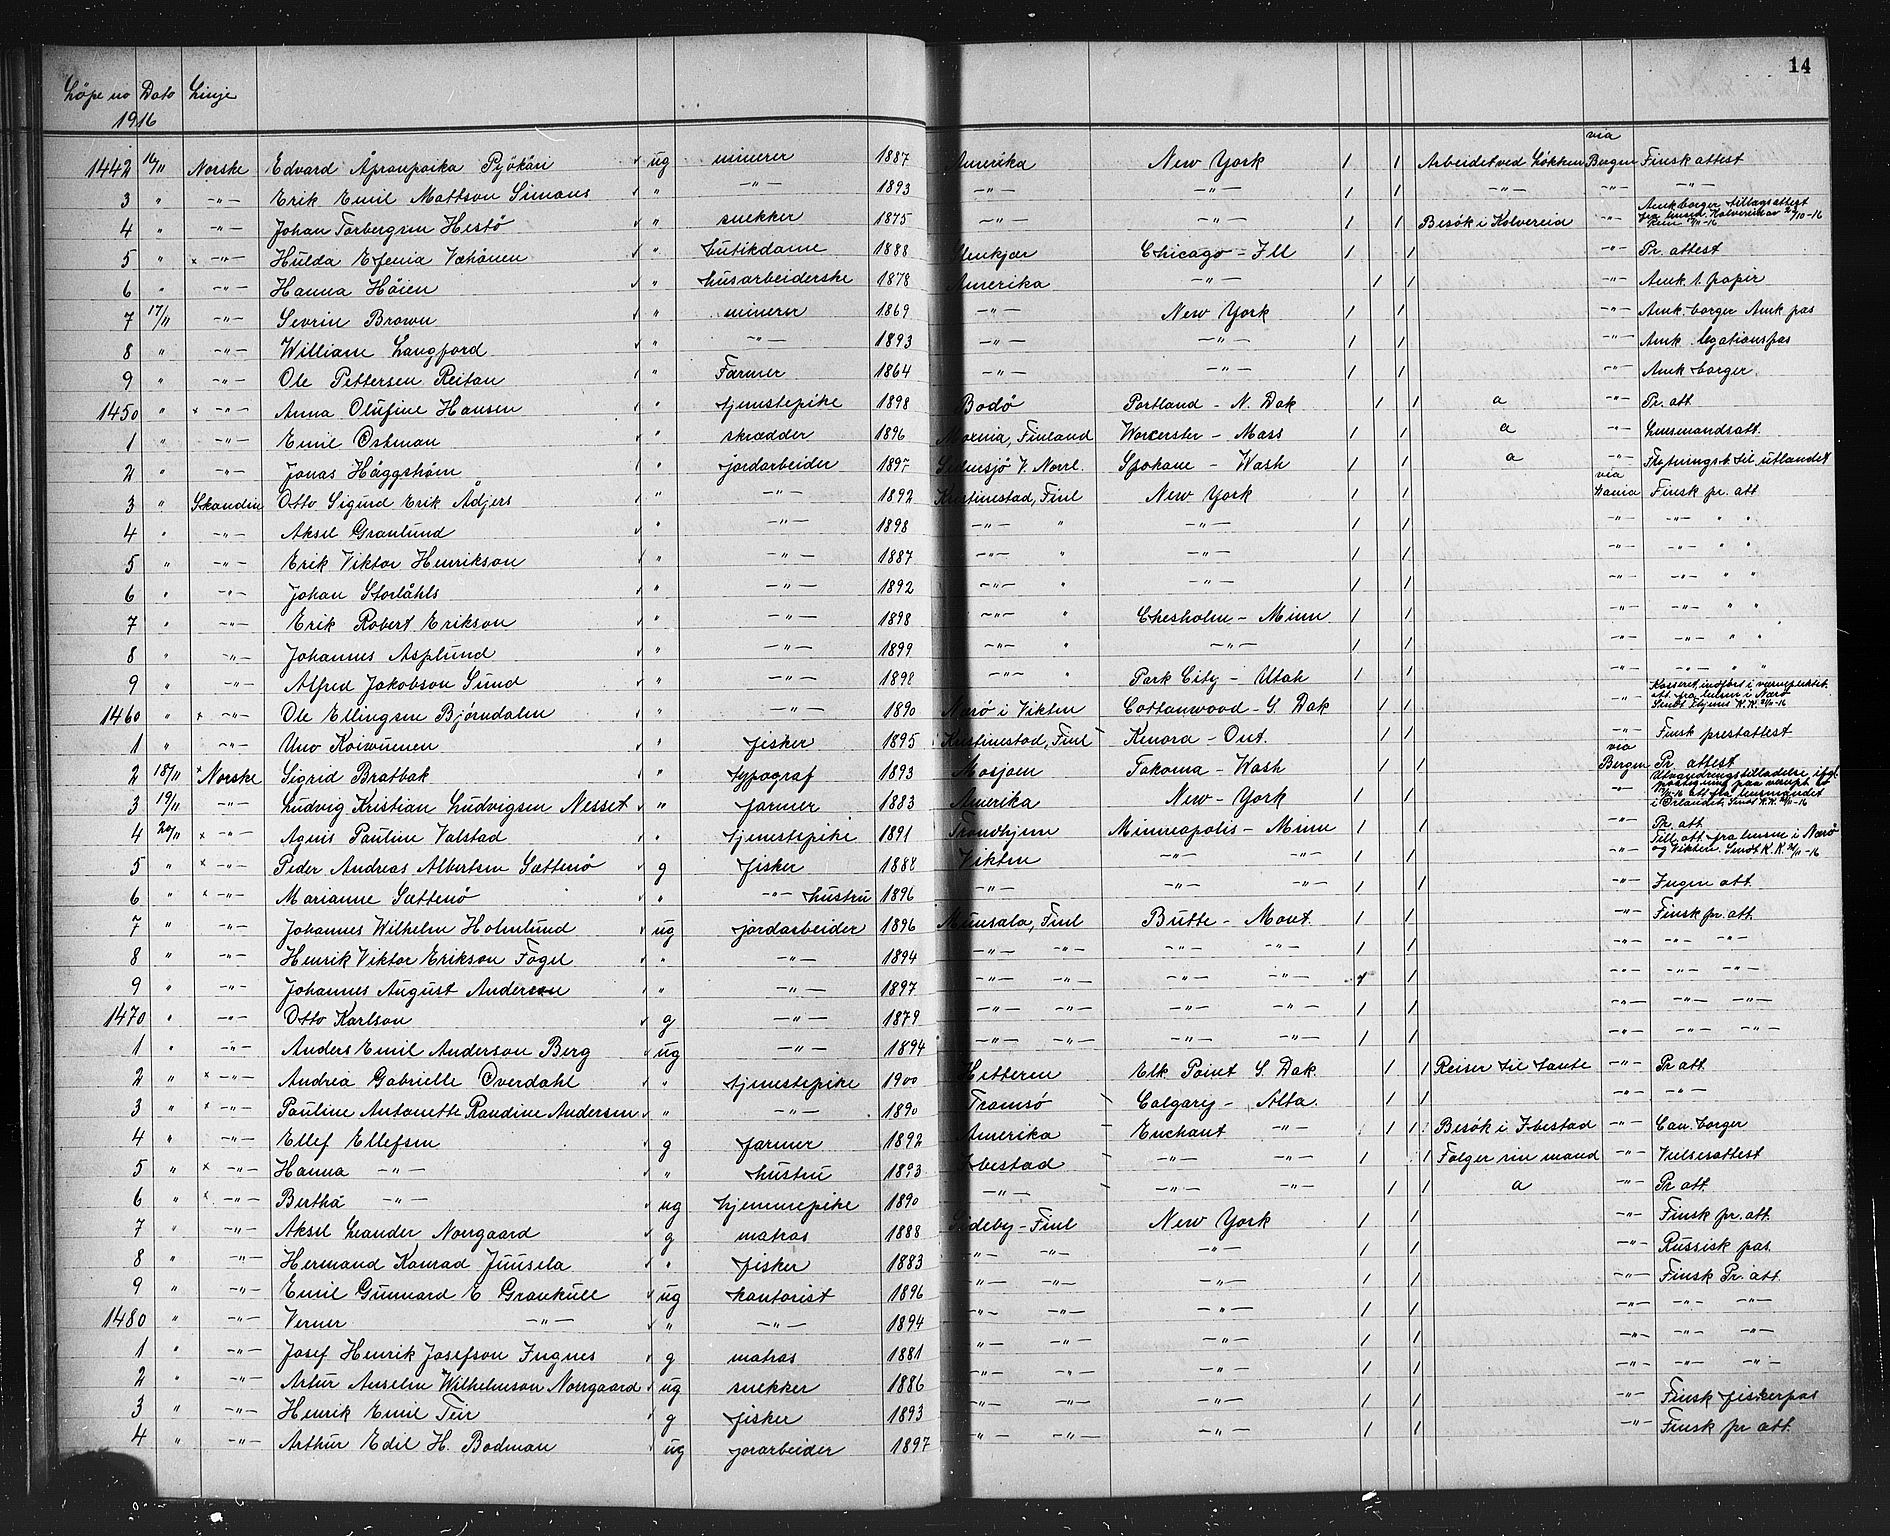 14
Löpe no Dato Linje
1916
via
1442 16/11 Norske Edvard Åpranpoika Pyökäri ug minerer 1887 Amerika New York 1 1 Arbeidet ved Løkken Bergen Finsk attest
3 " -"- Erik Emil Mattson Simons " -"- 1893 -"- -"- 1 1 -"- -"- -"-
4 " -"- Johan Torbergsen Hestö " snekker 1875 -"- -"- 1 1 Besøk i Kolvereid -"- Amk borger tillagsattest
5 " x -"- Hulda Efenia " butikdame 1888 Stenkjær Chicago - Ill 1 1 -"- Pr. attest
6 " -"- Hanna Höien " husarbeiderske 1878 Amerika -"- 1 1 -"- Amk. 1. papir
7 17/11 -"- Sevrin Brown " minerer 1869 -"- New York 1 1 -"- Amk. borger Amk pas
8 " -"- William Langfjord " -"- 1893 -"- -"- 1 1 -"- Amk. legationspas
9 " -"- Ole Pettersen Reitan " Farmer 1864 -"- -"- 1 1 -"- Amk borger
1450 " x -"- Anna Olufine Hansen " tjenestepike 1898 Bodö Portland - N. Dak 1 1 a -"- Pr. att
1 " -"- Emil Östman " skrædder 1896 Finland Worcerster - Mass 1 1 a -"- Lensmandsatt.
2 " -"- Jonas Häggshöm " jordarbeider 1897 V. Norrl. Spokane - Wash 1 1 a -"- Flytningsb. til utlandet
via
3 " Skandin Otto Sigurd Erik Ådjers " -"- 1892 Kristinestad, Finl New York 1 1 Finsk pr. att
4 " -"- Aksel Granlund " -"- 1898 -"- " -"- 1 1 -"- -"- " "
5 " -"- Erik Viktor Henrikson " -"- 1887 -"- " -"- 1 1 -"- -"- " "
6 " -"- Johan Storlåhls " -"- 1892 -"- " -"- 1 1 -"- -"- " "
7 " -"- Erik Robert Erikson " -"- 1898 -"- " Chesholm - Minn 1 1 -"- -"- " "
8 " -"- Johannes Asplund " -"- 1899 -"- " -"- 1 1 -"- -"- " "
9 " -"- Alfred Jakobson Sund " -"- 1898 -"- " Park City - Utah 1 1 -"- -"- " "
1460 " x -"- Ole Ellingsen Björndalen " -"- 1890 Nærö i Vikten Cottonwood - S. Dak 1 1 -"- att. fra lensm i Nærö
1 " -"- Uno Koiwunen " fisker 1895 Kristinestad, Finl Kenora - Ont. 1 1 -"- Finsk prestattest
via
2 18/11 x Norske Sigrid Bratbak " typograf 1893 Mosjøen Takoma - Wash 1 1 Bergen Pr. attest
3 19/11 -"- Ludvig Kristian Ludvigsen Nesset " farmer 1883 Amerika New - York 1 1 -"- Utvandringstilladelse ifgl.
4 20/11 x -"- Agnes Pauline Valstad " tjenestepike 1891 Trondhjem Minneapolis - Minn 1 1 -"- Pr. att
5 " x -"- Peder Andreas Albertsen Sættenö g fisker 1888 Vikten -"- -"- 1 1 -"- Till. att. fra lensm i Nærö og Vikten. Sendt K.K. 21/11-16
6 " x -"- Marianne Sættenö " -"- hustru 1896 -"- -"- -"- 1 1 -"- Ingen att.
7 " -"- Johannes Wilhelm Holmlund ug jordarbeider 1896 Munsala, Finl Butte - Mont. 1 1 -"- Finsk pr. att.
8 " -"- Henrik Viktor Erikson Fogel " -"- 1894 -"- -"- -"- -"- 1 1 -"- -"- -"-
9 " -"- Johannes August Anderson " -"- 1897 -"- -"- -"- -"- 1 1 -"- -"- -"-
1470 " -"- Otto Karlson g -"- 1879 -"- -"- -"- -"- 1 1 -"- -"- -"-
1 " -"- Anders Emil Anderson Berg ug -"- 1894 -"- -"- -"- -"- 1 1 -"- -"- -"-
2 " x -"- Andrea Gabrielle Overdahl " tjenestepike 1900 Hitteren Elk. Point S. Dak. 1 1 Reiser til tante -"- Pr att.
3 " x -"- Pauline Antonette Randine Andersen " -"- 1890 Tromsö Calgary - Alta. 1 1 -"- -"-
4 " -"- Ellef Ellefsen g farmer 1892 Amerika Enchant -"- 1 1 Besøk i Ibestad -"- Can. borger
5 " x -"- Hanna -"- " hustru 1893 Ibestad -"- -"- 1 Følger sin mand -"- Vielsesattest
6 " x -"- Bertha -"- ug hjemmepike 1890 -"- -"- -"- 1 1 a -"- Pr. att.
7 " -"- Aksel Leander Norrgaard g matros 1888 Sideby - Finl New York 1 1 -"- Finsk pr. att.
8 " -"- Hermand Konrad Juusela " fisker 1883 -"- -"- -"- 1 1 -"- Russisk pas.
9 " -"- Emil Gunnard E Grankull ug kontorist 1896 -"- -"- -"- 1 1 -"- Finsk Pr. att.
1480 " -"- Verner -"- " -"- 1894 -"- -"- -"- 1 1 -"- -"- -"-
1 " -"- Josef Henrik Josefson Ingnes g matros 1881 -"- -"- -"- 1 1 -"- -"- -"-
2 " -"- Artur Anselm Wilhelmson Norrgaard ug snekker 1886 -"- -"- -"- 1 1 -"- -"- -"-
3 " -"- Henrik Emil Teir g fisker 1893 -"- -"- -"- 1 1 -"- Finsk fiskerpas
4 " -"- Arthur Edil H. Bodman ug jorarbeider 1897 -"- -"- -"- 1 1 -"- Finsk pr att.